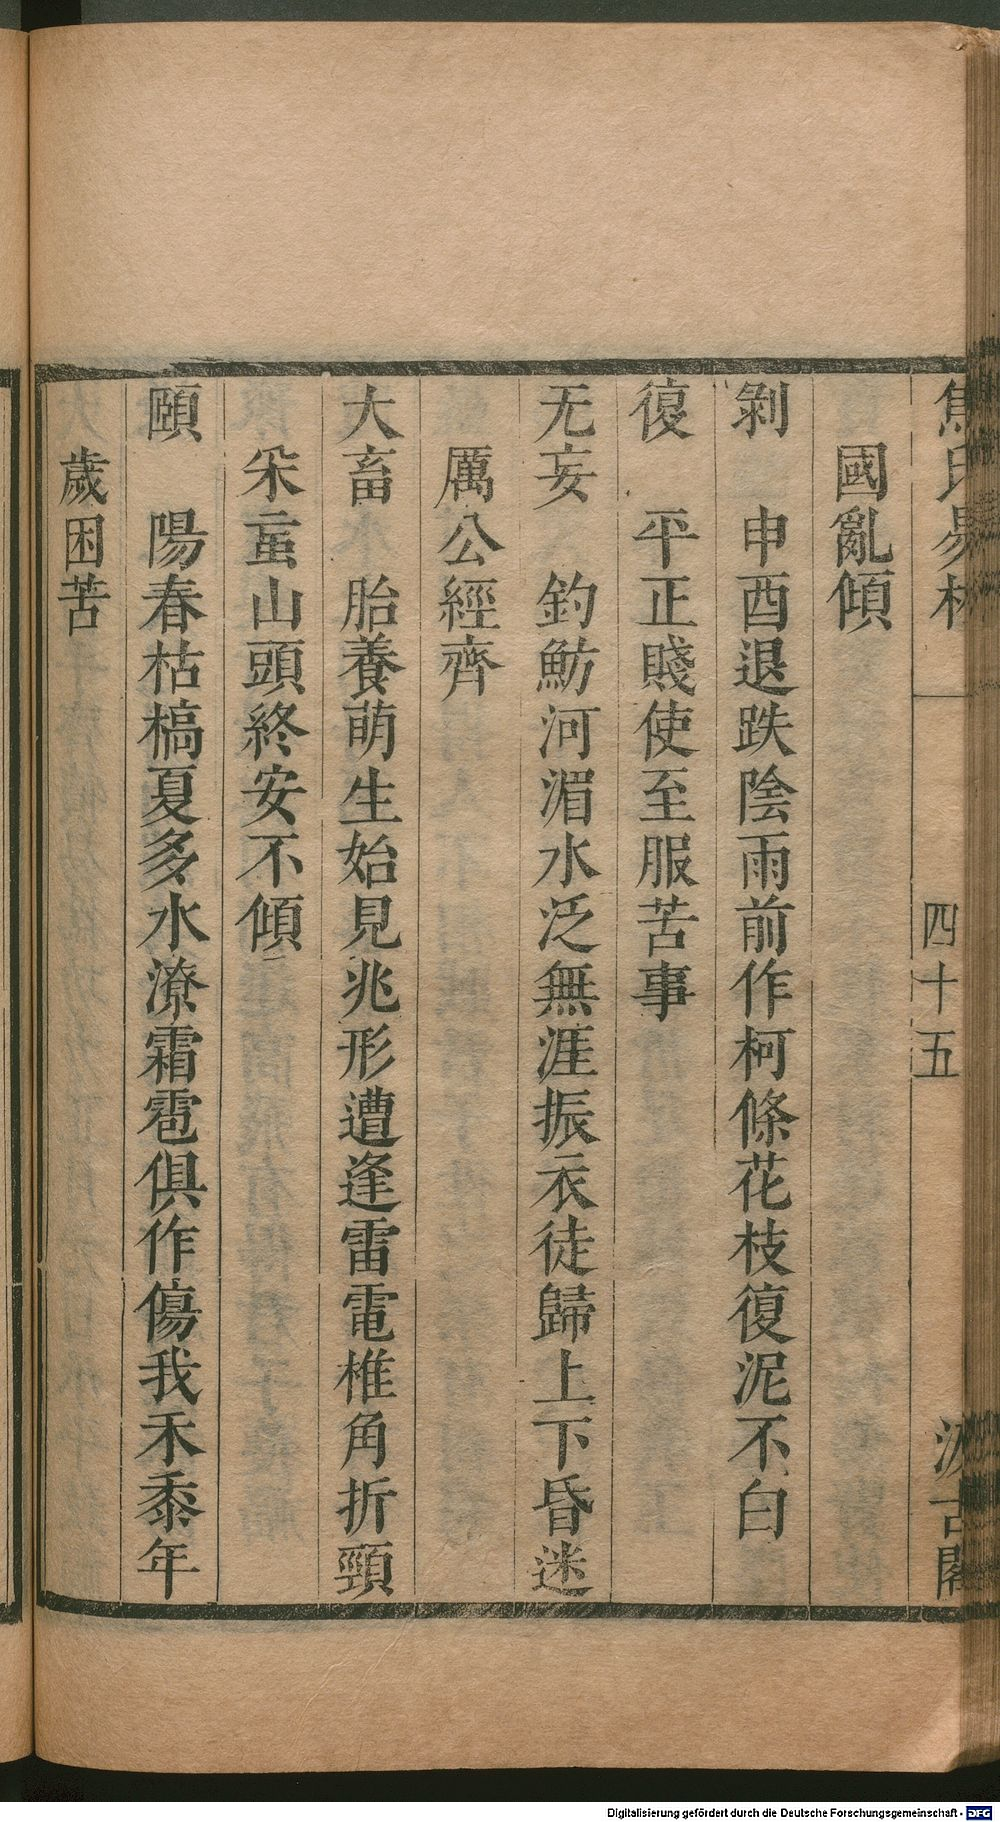 焦氏易林 四十五 汲古閣
國亂傾
剝 申酉退跌陰雨前作柯條花枝復泥不白
復 平正賤使至服苦事
无妄 釣魴河湄水泛無涯振衣徒歸上下昏迷
厲公經齊
大畜 胎養萌生始見兆形遭逢雷電椎角折頸
朵䖟山頭終安不傾
頤 陽春枯槁夏多水潦霜雹俱作傷我禾黍年
歲困苦
Digitalisierung gefördert durch die Deutsche Forschungsgemeinschaft - DFG